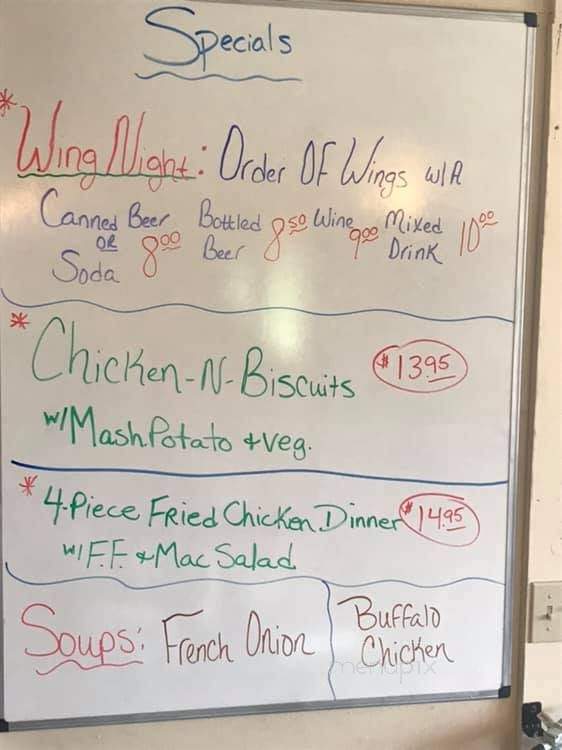 Specials
* Wing Night: Order OF Wings w/A
Canned Beer OR Soda 8.00 Bottled Beer 8.50 Wine 9.00 Mixed Drink 10.00
* Chicken-N-Biscuits $13.95
w/Mash.Potato + veg.
* 4-Piece Fried Chicken Dinner $14.95
w/F.F. + Mac Salad
Soups: French Onion
Buffalo
Chicken
menupix